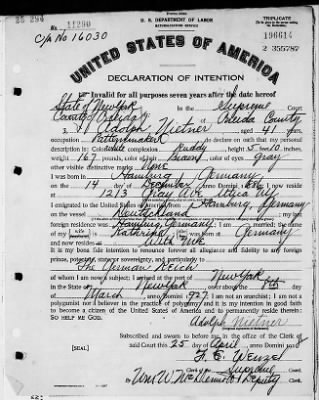 No. 11260
TRIPLICATE
U. S. DEPARTMENT OF LABOR
NATURALIZATION SERVICE
C/A No 16030
196614
2 355787
UNITED STATES OF AMERICA
DECLARATION OF INTENTION
Invalid for all purposes seven years after the date hereof
State of New York
In the Supreme Court
County of Oneida
of Oneida County
I, Adolph Nietner aged 41 years,
occupation Patternmaker, do declare on oath that my personal
description is: Color white complexion Ruddy height 5 feet 10 inches,
weight 167 pounds, color of hair Brown, color of eyes gray
other visible distinctive marks None
I was born in Hamburg Germany
on the 14 day of December, anno Domini 1886; I now reside
at 1213 Gray Ave Utica NY
I emigrated to the United States of America from Hamburg, Germany
on the vessel Deutschland; my last
foreign residence was Hamburg Germany; I am married; the name
of my wife is Katherine; she was born at Germany
and now resides at with me
It is my bona fide intention to renounce forever all allegiance and fidelity to any foreign
prince, potentate, state, or sovereignty, and particularly to
The German Reich
of whom I am now a subject; I arrived at the port of New York
in the State of New York on or about the 8th day
of March, anno Domini 1927; I am not an anarchist; I am not a
polygamist nor a believer in the practice of polygamy; and it is my intention in good faith
to become a citizen of the United States of America and to permanently reside therein:
SO HELP ME GOD.
Adolph Nietner
Subscribed and sworn to before me in the office of the Clerk of
[SEAL]
said Court this 25 day of April, anno Domini
F. E. Wenzel
Supreme
Deputy